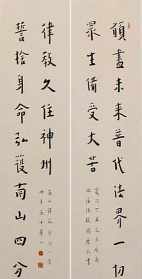 願盡未來普代法界一切
眾生備受大苦
誓捨身命弘護南山四分
律教久住神州